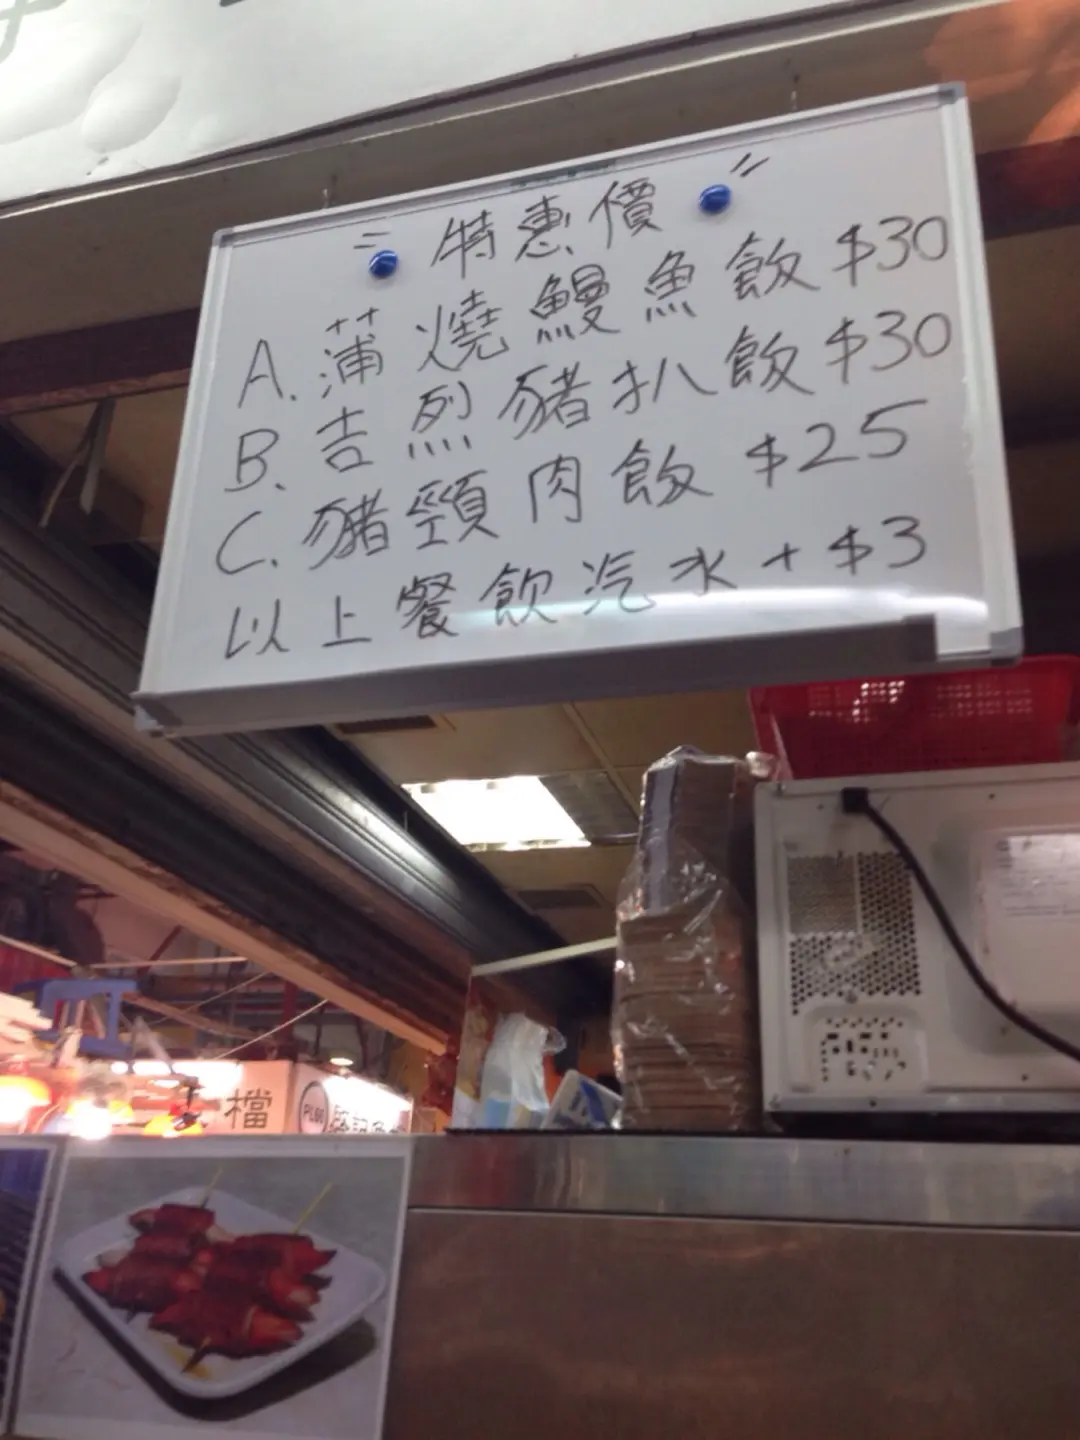 特惠價
A. 蒲燒鰻魚飯 $30
B. 吉烈豬扒飯 $30
C. 豬頸肉飯 $25
以上餐飲汽水 + $3
檔
PL06